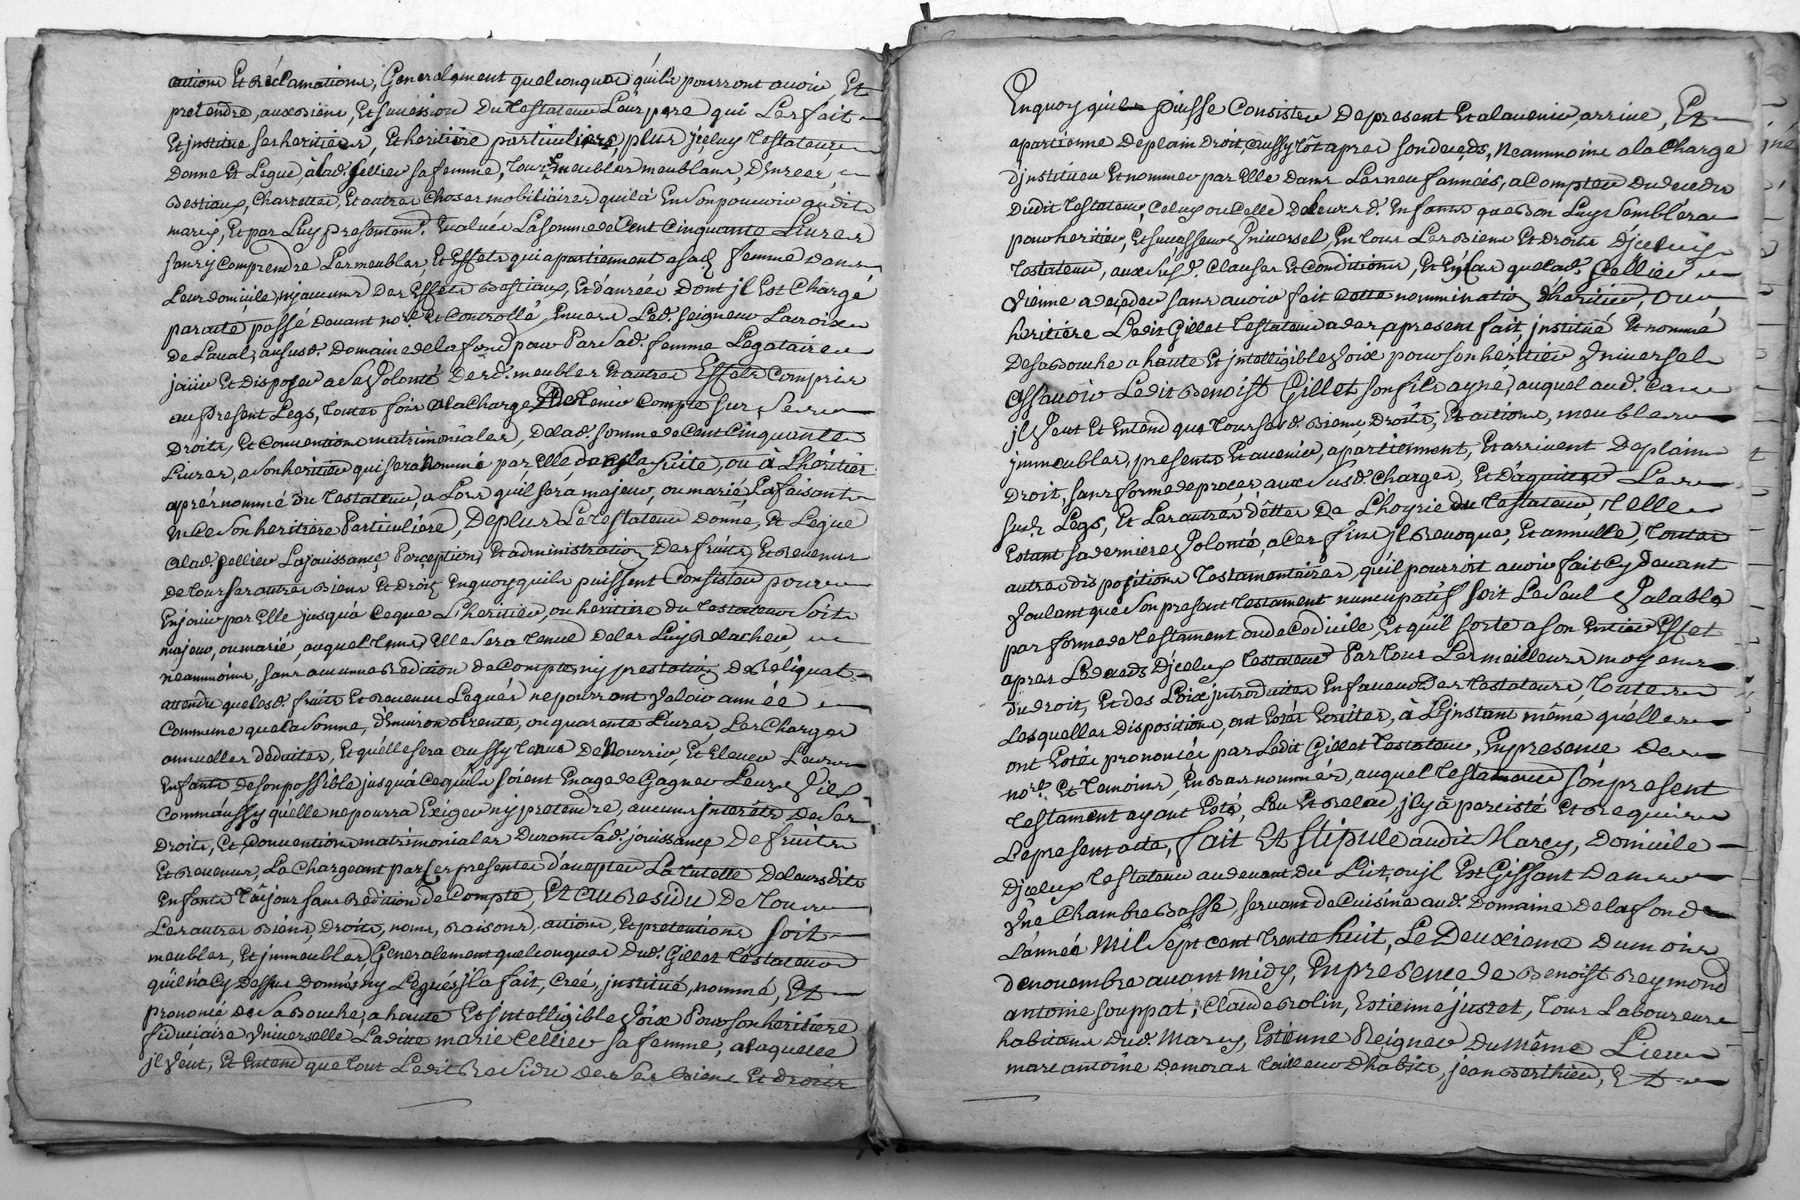 actions Et Réclamations, Generalement quelconques quils pourront avoir, Et
pretendre, aux biens, Et succession Du testateur Leur pere qui Les fait
Et institue ses heritiers, Et heritiere particuliers, plus jceluy testateur
Donne Et Legue, à lad. Cellier sa femme, tous Les meubles meublans, Denrees,
Bestiaux, Charrettes, Et autres choses mobiliaires quil a En son pouvoir audit
marcy, Et par Luy presentemt. Evalués La somme de Cent Cinquante Livres
sans y comprendre Les meubles, Et Effets qui apartiennent a sad. femme dans
Leur domicile, ny aucuns Des Effets Bestiaux, Et danrées Dont jl Est Chargé
par acte passé devant nore. Et Controllé, Envers Led. seigneur Lacroix
De Laval, au susd. Domaine de la fond pour Par Sad. femme Legataire
jouir Et Disposer a sa Volonté Desd. meubles Et autres Effets Compris
au present Legs, toutes fois a la charge De tenir Compte sur Ses
Droits, Et Conventions matrimoniales, De lad. somme de Cent Cinquante
Livres, a son heritier qui sera Nommé par Elle dans La Suite, ou à L'héritier
aprés nommé du testateur, a Lors quil sera majeur, ou marié, La faisant
En Ce Son heritiere Particuliere, De plus Le testateur donne, Et Legue
a lad. Cellier La jouissance Perception, Et administration Des fruits, Et Revenus
de tous ses autres Biens Et Droits En quoy quils puissent Consister pour
En jouir par Elle jusqu'à ce que L'heritier, ou heritiere du testateur Soit
majeur, ou marié, auquel tems Elle sera tenue de les Luy Relacher,
neanmoins, sans aucune Redition de Compte, ny prestation de Reliquat
attendu que lesd. fruits Et Revenus Legués ne pourront Valoir année
Commune que la somme, d'Environ trente, ou quarante Livres Les charges
annuelles deduites, Et qu'elle sera aussy tenue De Nourrir, Et Elever Leurs
Enfants de son possible, jusqu'a ce quils soient En age de Gagner Leurs Vies
Comm'aussy qu'elle ne pourra Exiger ny pretendre, aucuns interéts De Ses
Droits, Et Conventions matrimoniales Durant Sad. jouissance De fruits
Et Revenus, La Chargeant par Les presentes d'accepter La tutelle de Leursdits
Enfants toujours sans Redition de Compte, Et Au Residu De tous
Les autres Biens, Droits, noms, Raisons, actions, Et pretentions soit
meubles, Et jmmeubles Generalement quelconques Dud. Gillet testateur
qu'il n'a Cy Dessus donnés, ny Legués, jl a fait, Créé, justitué, nommé, Et
prononcé de Sa Bouche, a haute Et jntelligible Voix Pour son heritiere
fiduciaire Vniverselle Laditte marie Cellier sa femme, a laquelle
jl Veut, Et Entend que tout Ledit Residu de ses Biens Et Droits
En quoy quil puisse Consister De present Et a l'avenir, arrive, Et
apartienne De plain Droit, aussy tôt apres son deceds, Neanmoins a la Charge
d'jnstituer Et nommer par Elle Dans Les neuf années, a Compter du deceds
Dudit testateur, Celuy ou Celle de Leursd. Enfants que Bon Luy Semblera
pour heritier, Et successeur Vniversel, En tous Les Biens Et Droits Djceluy
testateur, aux susd. Clauses Et Conditions, Et En Cas que lad. Cellier
Vienne a deceder sans avoir fait cette nommination d'heritier, ou
héritiére Ledit Gillet testateur a des apresent fait, jnstitué Et nommé
De sa Bouche a haute Et jntelligible Voix pour son héritier Vniversel
assavoir Ledit Benoist Gillet son fils ayné, auquel aud. Cas
jl Veut Et Entend que tous sesd. Biens, Droits, Et actions, meubles
jmmeubles, presents Et avenir, apartiennent, Et arrivent De plain
Droit, sans forme de procés, aux susd. Charges, Et D'aquitter Les
susd. Legs, Et Les autres dettes De L'hoyrie du testateur, telle
Estant sa derniere Volonté, a Ces fins jl Revoque, Et annulle, toutes
autres dispositions testamentaires, qu'il pourroit avoir fait Cy devant
Voulant que Son present testament nuncupatif soit Le seul Valable
par forme de testament ou de Codicile Et quil sorte a son Entier Effet
apres Le deceds Djceluy testateur Par tous Les meilleurs moyens
du droit, Et des Loix jntroduites En faveur Des testateurs, toutes
Lesquelles Dispositions, ont Estés Ecrites, à L'jnstant même qu'elles
ont Estés prononcées par Ledit Gillet testateur, En presence De
nore. Et temoins, En Bas nommés, auquel testateur son present
testament ayant Esté, Leu Et Releu, jl y a percisté Et Requis
Le present acte, fait Et stipulé audit Marcy, Domicile
Djceluy testateur au devant du Lit, ou jl Est Gissant Dans
Vne Chambre Basse servant de Cuisine aud. Domaine De la fond
L'année Mil Sept cent trente huit, Le Deuxieme du mois
de novembre avant midy, En presence de Benoist Reymond
antoine souppat, Claude Rolin, Estienne justet, tous Laboureurs
habitans dud. Marcy, Estienne Peigner Du Même Lieu
marc antoine Demoras tailleur Dhabits, jean Berthier, Et